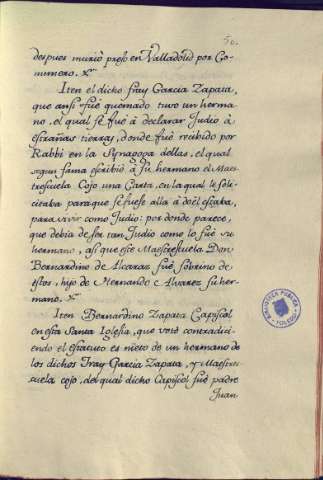 50.
despues murió preso en Valladolid por Co-
munero. X.
Iten el dicho fray Garcia Zapata,
que ansi fué quemado tuvo un herma-
no, el qual se fué á declarar Judio á
estrañas tierras, donde fué recibido por
Rabbi en la Synagoga dellas, el qual
segun fama escribió á su hermano el Maes-
trescuela Cojo una Carta, en la qual le soli-
citaba para que se fuese alla á do él estaba,
para vivir como Judio: por donde parece,
que debia de ser tan Judio como lo fué su
hermano, asi que este Maestrescuela Don
Bernardino de Alcaraz fué sobrino de
estos, hijo de Hernando Alvarez su her-
mano. X.
Iten Bernardino Zapata Capiscol
en esta Santa Iglesia, que votó contradici-
endo el estatuto es nieto de un hermano de
los dichos Fray Garcia Zapata, y Maestres-
cuela cojo, del qual dicho Capiscol fué padre
Juan
BIBLIOTECA PUBLICA
TOLEDO